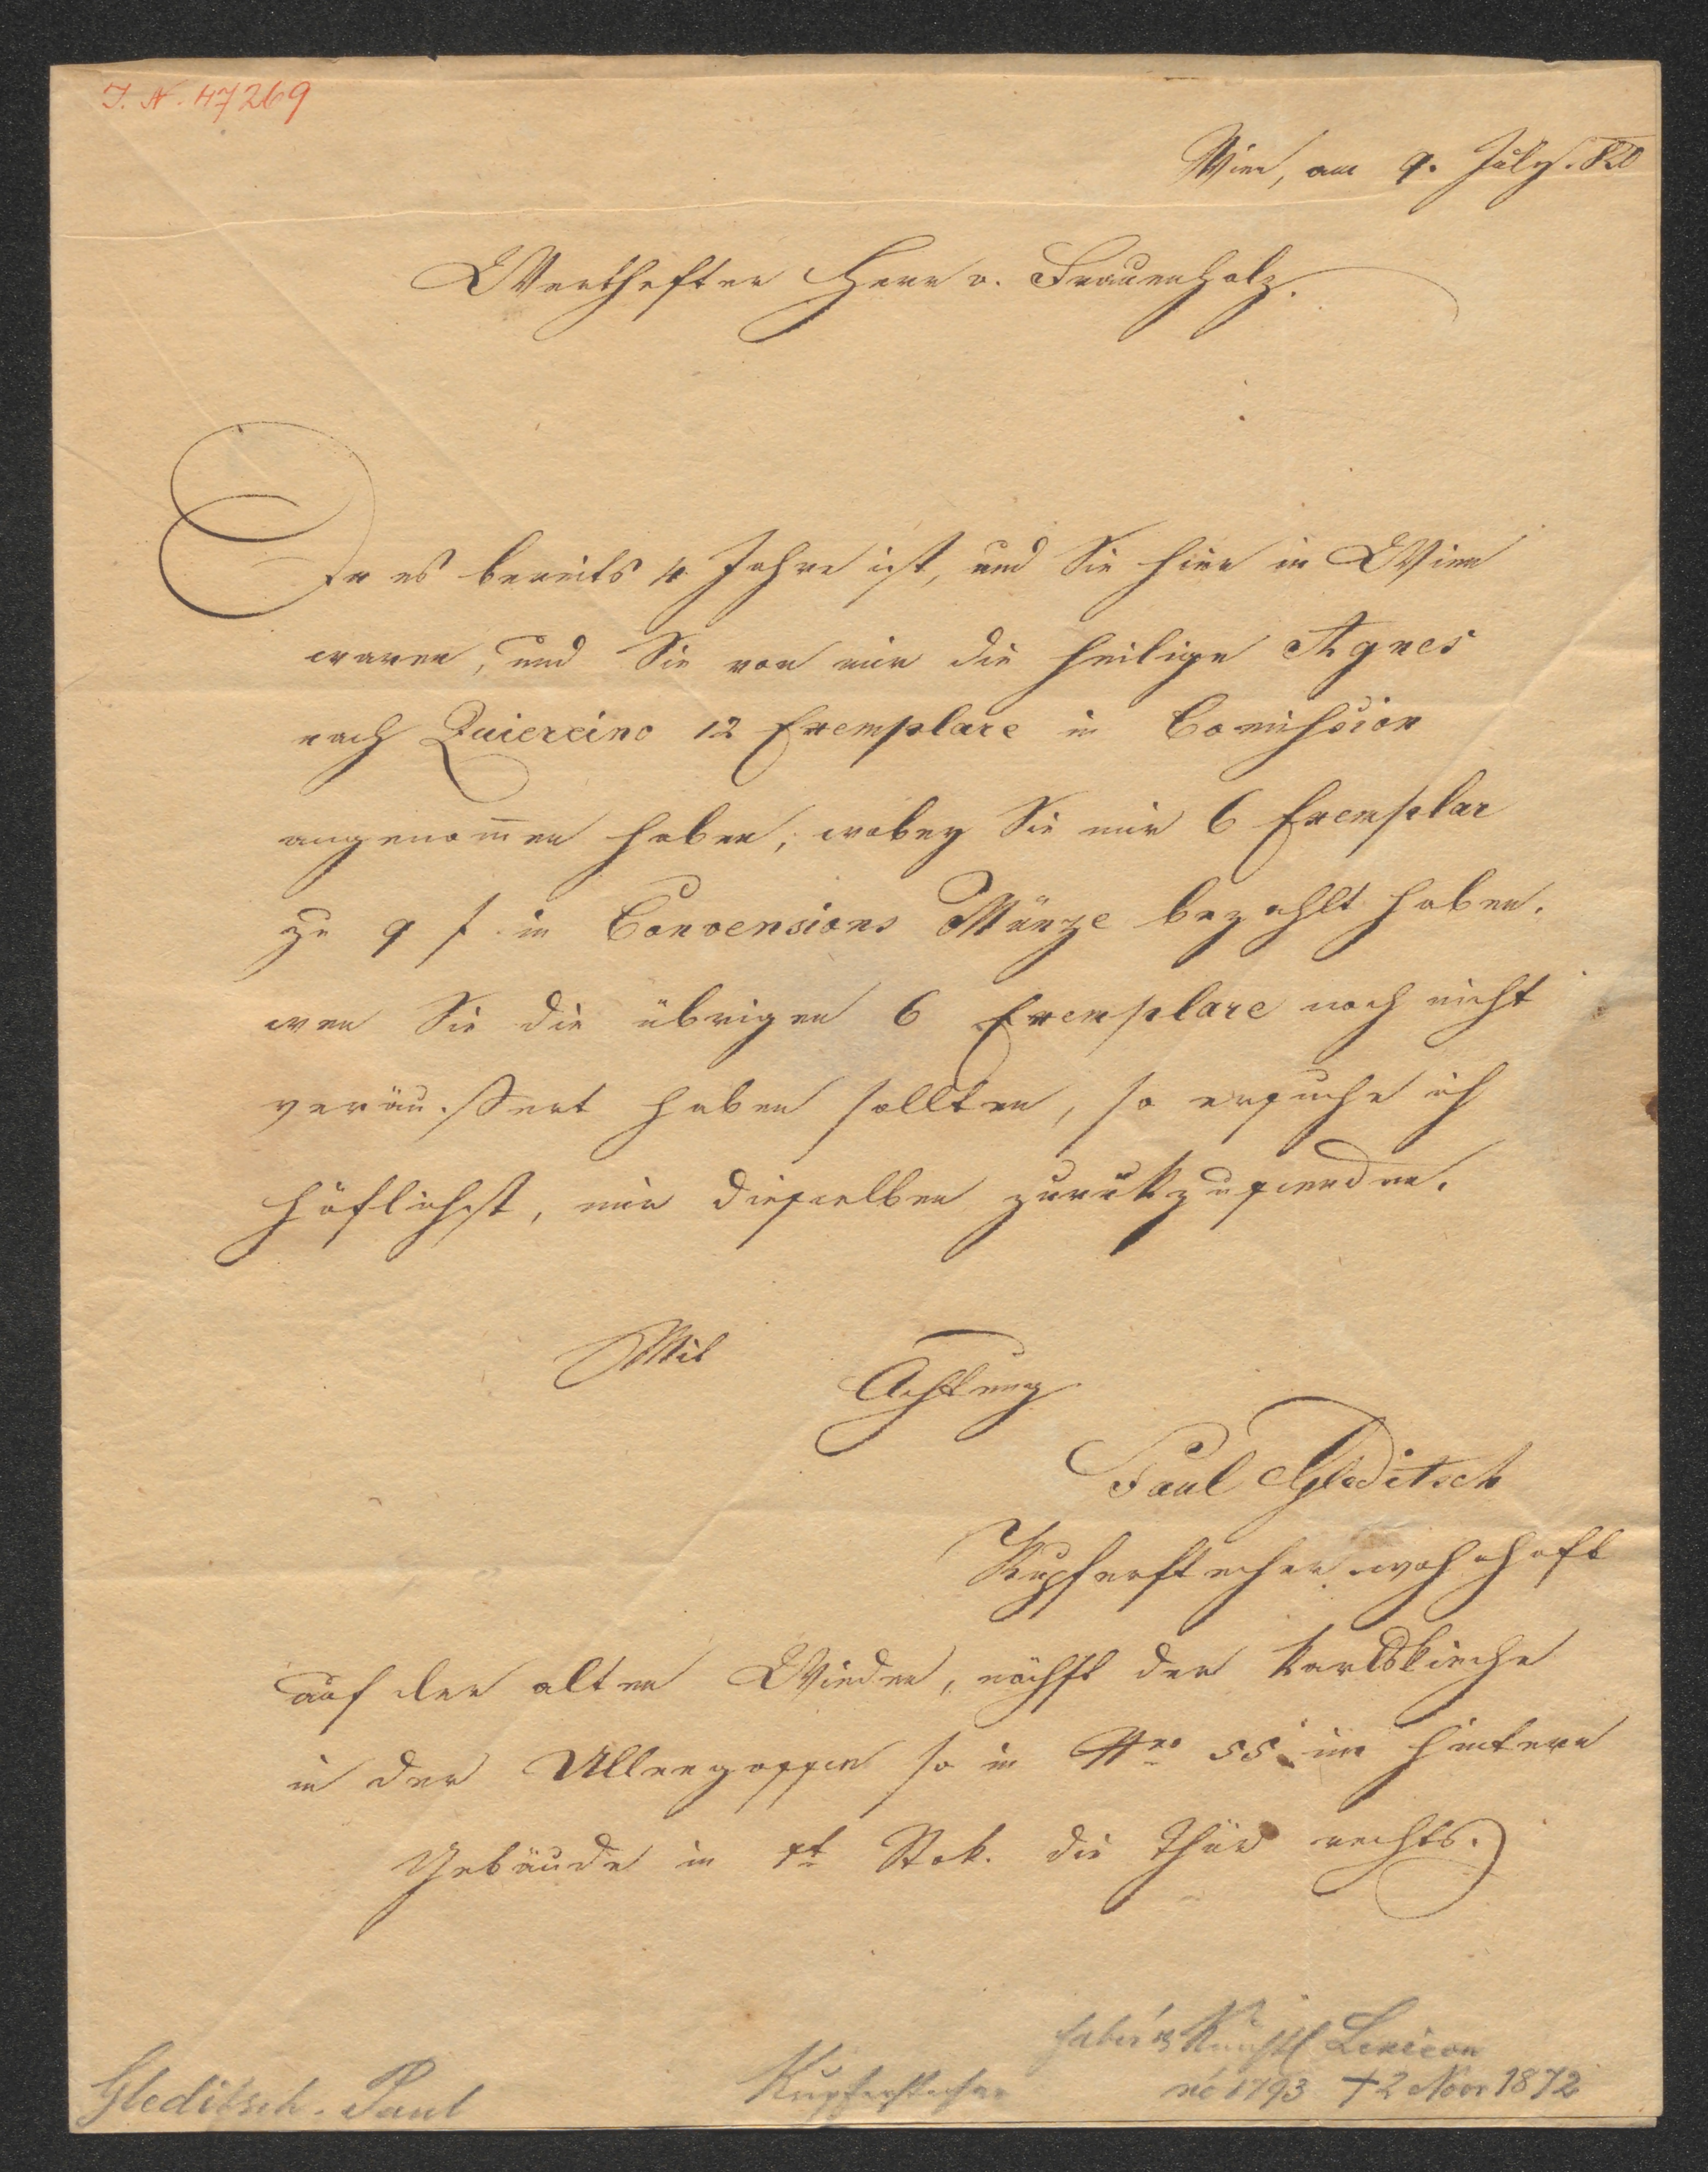 I. N. 47269
Wien, am 9. July. 820
Werthester Herr v. Frauenholz.
Da es bereits 4 Jahre ist, und Sie hier in Wien
waren, und Sie von mir die heilige Agnes
nach Quiercino 12 Exemplare in Comission
angenom̅en haben, wobey Sie mir 6 Exemplar
zu 9 f in Convensions Münze bezahlt haben.
wen Sie die übrigen 6 Exemplare noch nicht
veräussert haben sollten, so ersuche ich
höflichst, mir dieselben zurükzusenden.
Mit
Achtung
Paul Gleditsch
Kupferstecher wohnhaft
auf der alten Wieden, nächst der Karlskirche
in der Alleegasse in Nro 55 im hintern
Gebäude in 1t Stok. die Thür rechts.
Faber's Künstl Lexicon
Gleditsch. Paul Kupferstecher né 1793 † 2 Nov 1872